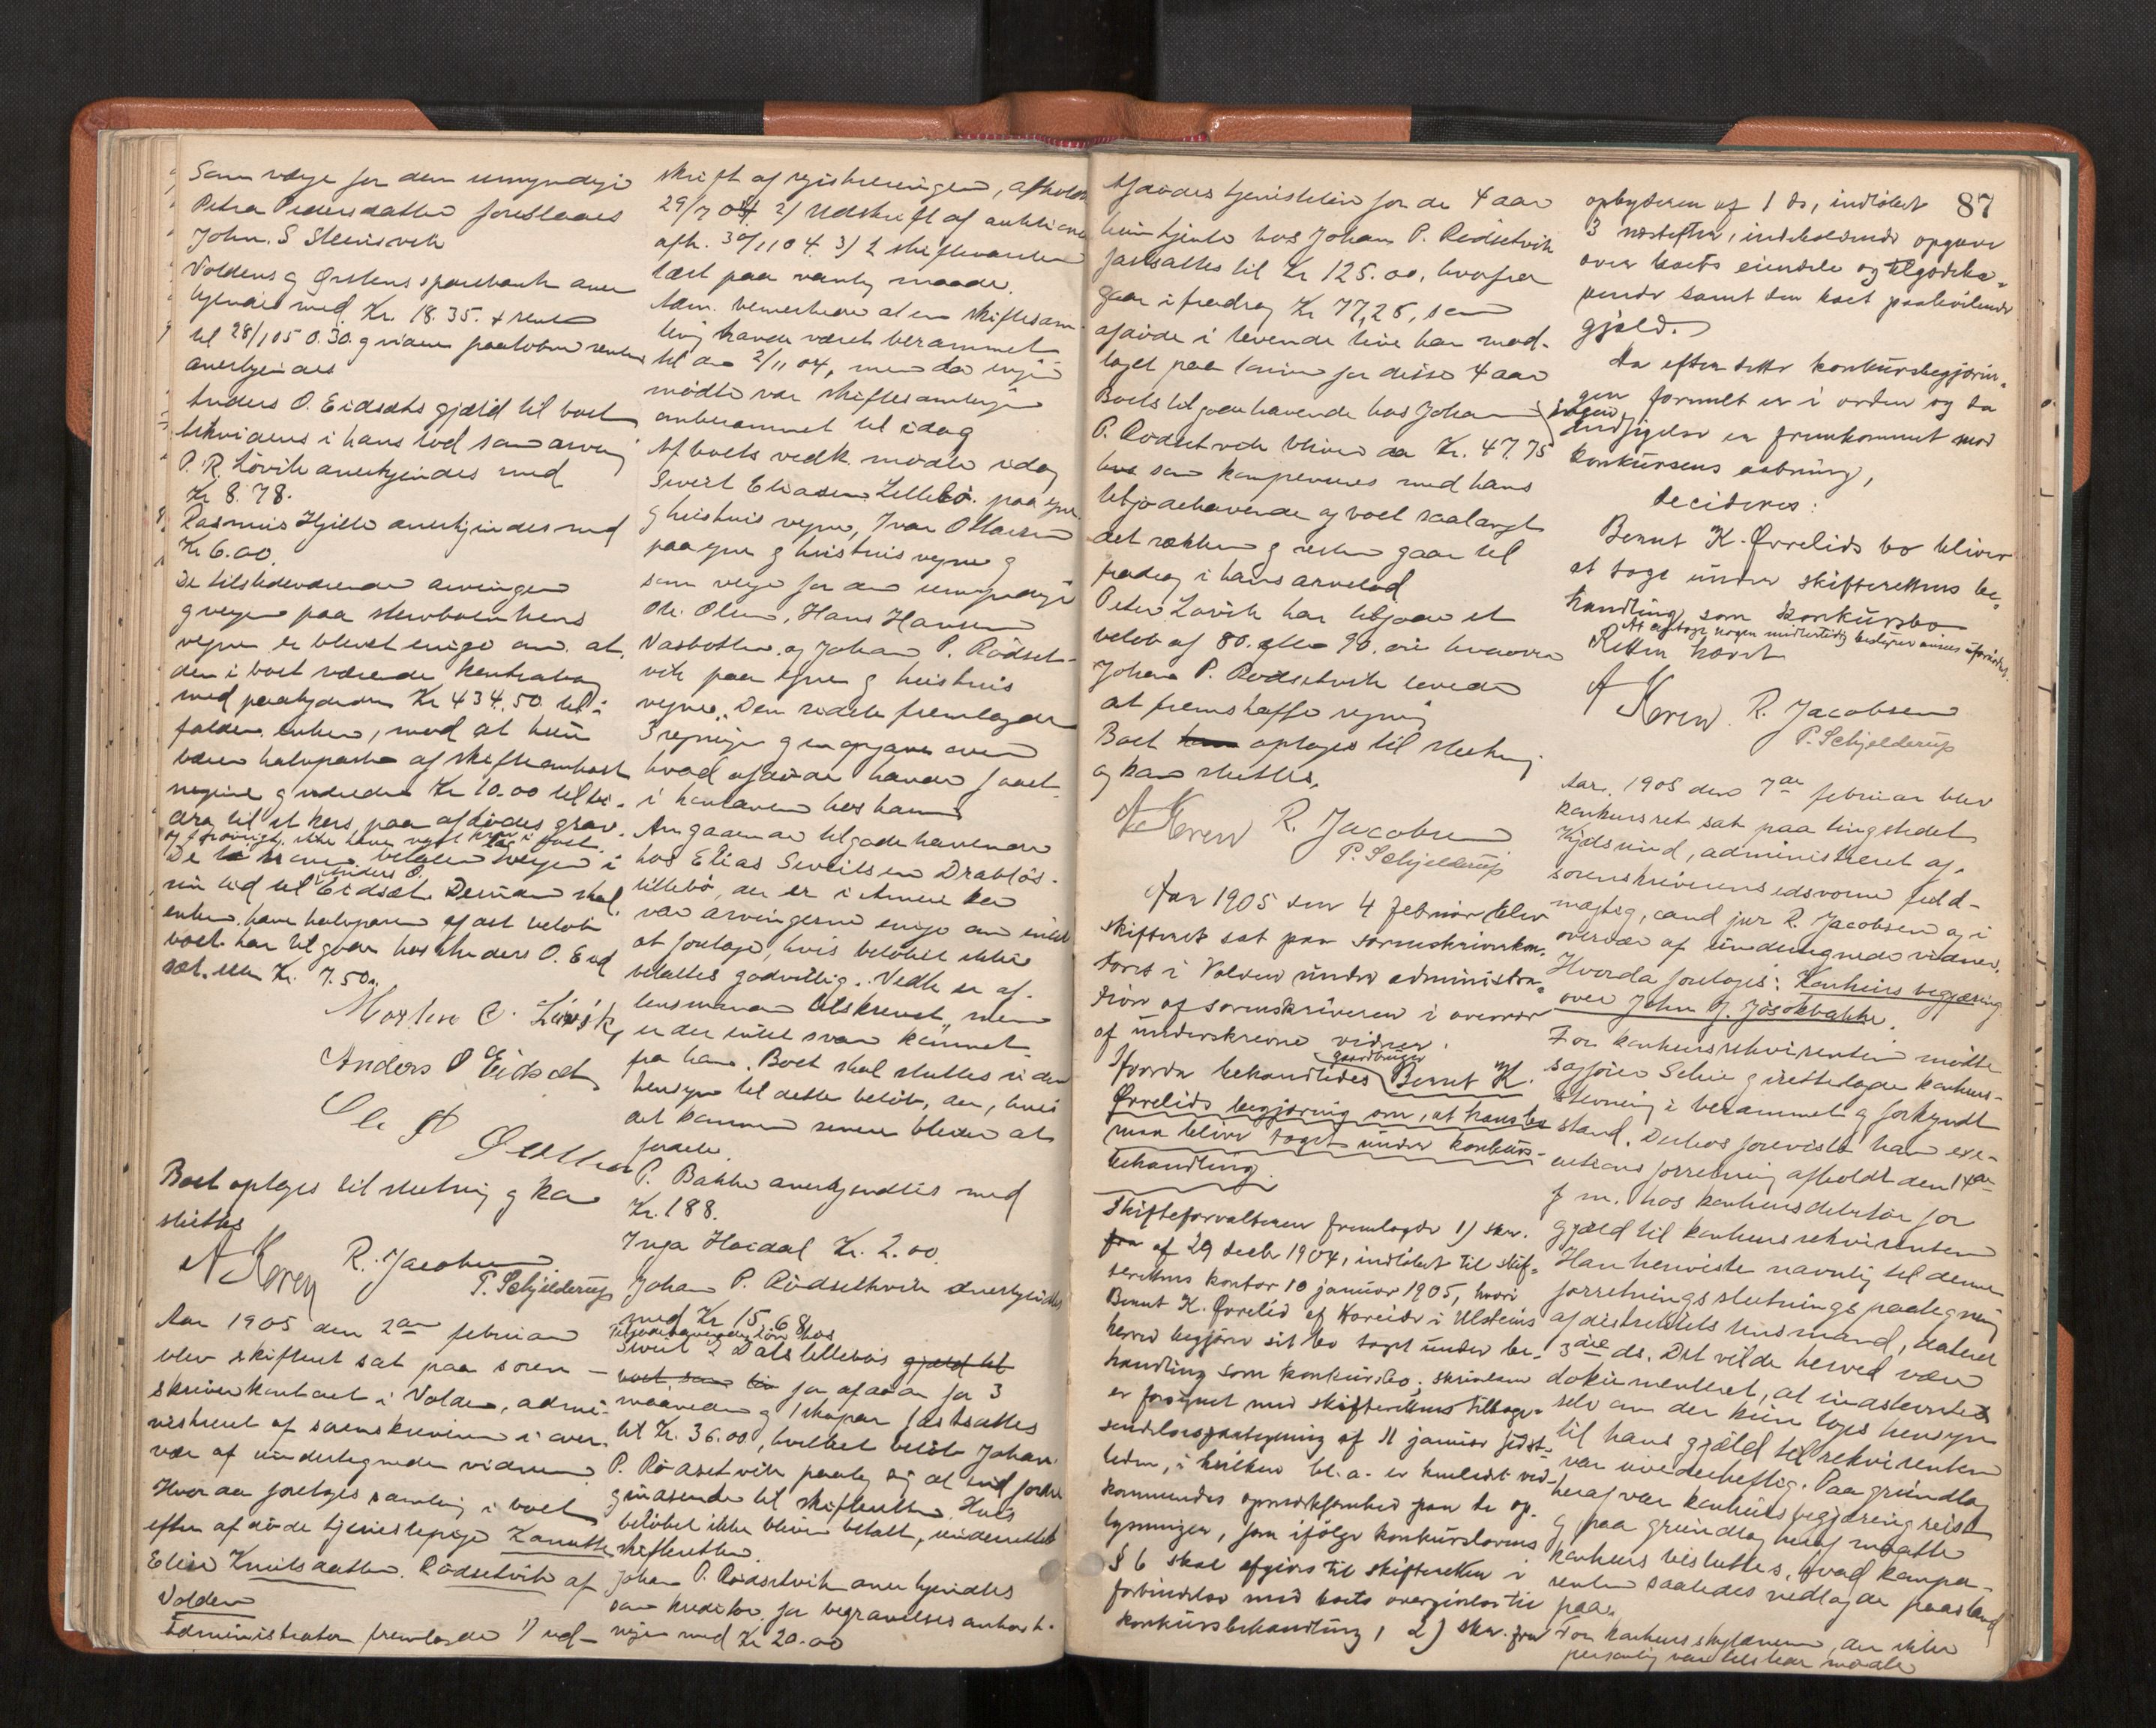 Som verge for den umyndige
Petra Pedersdatter foreslaaes
John. S Steinsvik
Voldens og Ørstens sparebank aner
kjendes med Kr. 18.35. + renter
til 28/1 05 0.30. g videre paaløbne renter
anerkjendes
Anders O. Eidsæts gjæld til boet
likvideres i hans lod som arving
P. R. Løvik anerkjendes med
Kr 8.78.
Rasmus Hjelle anerkjendes med
Kr 6.00.
De tilstedeværende arvinger
g vergen paa stervboenkens
vegne er blevet enige om at
den i boet værende
med paabydende Kr 434.50 til-
falder enken, mod at hun
bærer halvparten af skifteomkost
ningene g udreder Kr 10.00 til bi-
drag til et kors paa afdødes grav.
De
sin lod til Anders O. Eidsæt. Desuden skal
enken have halvparten af det beløb
boet har til gode hos Anders O. Eid
sæt. eller Kr. 7.50.
Morten C. Løvik
Anders O Eidsæt
Boet optages til slutning g kan
sluttes
A Koren R. Jacobsen
P. Schjelderup
Aar 1905 den 2den februar
blev skifteret sat paa soren-
skriverkontoret i Volden, admi-
nistreret af sorenskriveren i over-
vær af undertegnede vidner
Hvor da foretoges samling i boet
efter afdøde tjenestepige Kanutte
Elise Knutsdatter Rødsetvik af
Volden
Administrator fremlagde 1) ud-
skrift af registreringen, afholdt
29/7 04 2) Udskrift af auktionen
afh. 30/11 04. 3) 2 skiftevarsler
læst paa vanlig maade.
Adm. bemerkede at en skiftesam-
ling havde været berammet
til den 2/11 04, men da ingen
mødte var skiftesamlingen
omberammet til idag
Af boets vedk. mødte idag
Sivert Eliassen Lillebø paa egne
g hustrus vegne, Ivar Ottarsen
paa egne g hustrus vegne g
som verge for den umyndige
Ole Olsen, Hans Hansen
Vasbotten og Johan P. Rødset-
vik paa egne g hustrus
vegne. Den sidste fremlagde
3 regninger g en opgave over
hvad afdøde havde faaet
i kontanter hos ham
Angaaende tilgodehavende
hos Elias Sivertsen Drabløs-
lillebø, der er i Amerika
var arvingerne enige om intet
at foretage, hvis beløbet ikke
betaltes godvillig. Vedk. er af
lensmanden tilskrevet, men
er der intet svar kommet
fra ham. Boet skal sluttes uden
hensyn til dette beløb, der, hvis
det kommer senere bliver at
fordele.
P. Bakke anerkjendtes med
Kr. 1 88.
Inga Hovdal Kr. 2.00
Johan P. Rødsetvik anerkjendtes
med Kr 15.68
Tilgodehavende løn hos
Sivert E Dalslillebøs gjæld til
boet som løn for afdøde for 3
maaneder g 1 skopar fastsattes
til Kr. 36.00, hvilket beløb Johan
P. Rødsetvik paatog sig at indfordre
g indsende til skifteretten. Hvis
beløbet ikke bliver betalt, underrettes
skifteretten.
Johan P. Rødsetvik anerkjendtes
som kreditor for begravelsesomkost-
ninger med Kr 20.00
87
Afdødes tjenesteløn for de 4 aar
hun tjente hos Johan P. Rødsetvik
fastsattes til Kr 125.00, hvorfra
gaar i fradrag Kr 77,25, som
afdøde i levende live har mod-
taget paa lønnen for disse 4 aar
Boets tilgodehavende hos Johan
P. Rødsetvik bliver da Kr. 47.75
hos som kompenseres med hans
tilgodehavende og boet saalangt
det rækker g resten gaar til
fradrag i hans arvelod
Peter Løvik har tilgode et
beløb af 80. eller 90. øre hvorover
Johan P. Rødsetvik lovede
at fremskaffe regning
Boet optages til slutning
og kan sluttes.
A Koren R. Jacobsen
P. Schjelderup
Aar 1905 den 4 februar blev
skifteret sat paa sorenskriverkon-
toret i Volden under administra-
tion af sorenskriveren i overvær
af underskrevne vidner.
Hvorda behandledes gaardbruger Bernt K.
Ørrelids begjæring om, at hans bo
maa blive taget under konkurs-
behandling.
Skifteforvalteren fremlagde 1) skr.
fra af 29 decbr 1904, indløbet til skif-
terettens kontor 10 januar 1905, hvori
Bernt K. Ørrelid af Hareide i Ulsteins
herred begjærer sit bo taget under be-
handling som konkursbo; skrivelsen
er forsynet med skifterettens tilbage-
sendelsespaategning af 11 januar sidst-
leden, i hvilken bl. a. er henledet ved-
kommendes opmerksomhed paa de op-
lysninger, som ifølge konkurslovens
§ 6 skal afgives til skifteretten i
forbindelse med boets overgivelse til
konkursbehandling, 2) skr. fra
opbyderen af 1 ds, indløbet
3 næstefter, indeholdende opgave
over boets eiendele og tilgodeha-
vende samt den boet paahvilende
gjæld.
Da efter dette konkursbegjærin-
gen formelt er i orden og da
ingen indsigelse er fremkommet mod
konkursens aabning,
decideres:
Bernt K. Ørrelids bo bliver
at tage under skifterettens be-
handling som konkursbo
At optage nogen midlertidig bestyrer ansees ufornødent.
Retten hævet
A Koren. R. Jacobsen
P. Schjelderup
Aar. 1905 den 7de februar blev
konkursret sat paa tingstedet
Kydsund, administreret af
sorenskriverens edsvorne fuld-
mægtig, cand jur R. Jacobsen og i
overvær af undertegnede vidner.
Hvorda foretoges: Konkurs begjæring
over John J. Jøsokbakke.
For konkursrekvirenten mødte
sagfører Schie g irettelagde konkurs-
stevning i berammet g forkyndt
stand. Derhos foreviste han exe-
cutions forretning afholdt den 14de
f m. hos konkursdebitor for
gjæld til konkursrekvirenten
Han henviste navnlig til denne
forretnings slutningspaategning
af distriktets lensmand, dateret
3die ds. Det vilde herved være
dokumenteret, at indstevnte
selv om der kun toges hensyn
til hans gjæld til rekvirenten
var uvederheftig. Paa grundlag
heraf var konkursbegjæring reist
g paa grundlag heraf maatte
konkurs besluttes, hvad kompa-
renten saaledes nedlagde paastand
paa.
For konkursskyldneren, der ikke
personlig var tilstede mødte